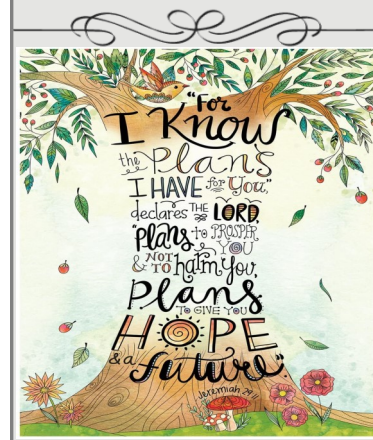 "For
I Know
the Plans
I HAVE for You,"
declares THE LORD
"Plans to PROSPER
YOU
& NOT TO harm You,
Plans
TO GIVE YOU
HOPE
& a future".
Jeremiah 29:11